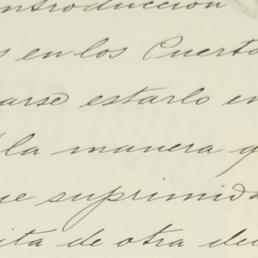 introducción
s en los Puerto
arse estarlo en
la manera q
ue suprimida
ita de otra de